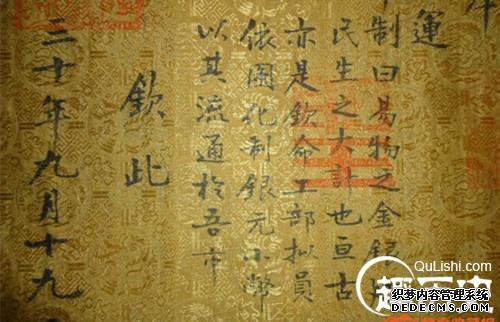 運
制曰易物之金銀
民生之大計也亘古
亦是欽命工部擬員
依圖化制銀元小幣
以其流通於吾市
欽此
三十年九月十九
QuLishi.com
趣历史
织梦内容管理系统
DEDECMS.COM